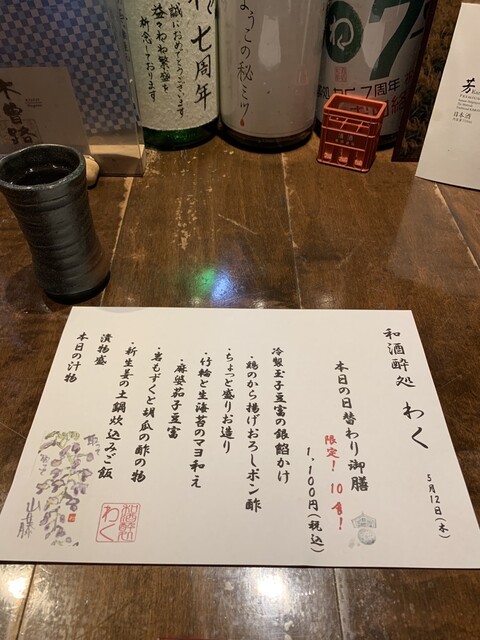 和酒酔処 わく
5月12日(木)
本日の日替わり御膳
限定!10食!
1,100円(税込)
冷製玉子豆富の銀餡かけ
・鶏のから揚げおろしポン酢
・ちょっと盛りお造り
・竹輪と生海苔のマヨ和え
・麻婆茄子豆富
・岩もずくと胡瓜の酢の物
・新生姜の土鍋炊込みご飯
漬物盛
本日の汁物
和酒酔処
わく
木曽路
七周年
誠におめでとうございます
益々わね繁盛を
祈念しております
ようこの秘ミツ
7周年
日本酒